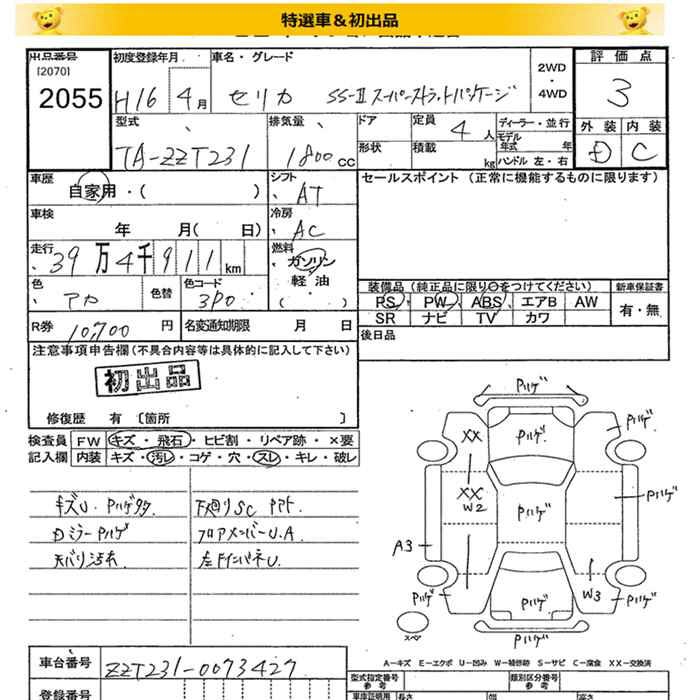 特選車＆初出品
出品番号
[2070]
2055
初度登録年月
H16 4月
車名・グレード
セリカ SS-Ⅱ スーパーストラットパッケージ
2WD・4WD
評価点
3
外装 内装
D C
型式
TA-ZZT231
排気量
1800cc
ドア
形状
定員 4人
積載 kg
ディーラー・並行
モデル年式 年
ハンドル 左・右
車歴
自家用・( )
シフト
AT
セールスポイント（正常に機能するものに限ります）
車検
年 月( 日)
冷房
AC
走行
39万4千911km
燃料
ガソリン
軽油
・( )
色
アカ
色替
色コード
3P0
装備品（純正品に限り○をつけてください） 新車保証書
PS PW ABS エアB AW
SR ナビ TV カワ
有・無
R券 10,700円
名変通知期限 月 日
後日品
注意事項申告欄(不具合内容等は具体的に記入して下さい)
初出品
修復歴 有 〔箇所 〕
検査員記入欄
FW キズ・飛石・ヒビ割・リペア跡・×要
内装 キズ・汚レ・コゲ・穴・スレ・キレ・破レ
キズU・Pハゲ多
Dミラー Pハゲ
天バリ汚れ
下廻りSC PPト
フロアメンバーU.A
左FインパネU.
Pハゲ
Pハゲ
Pハゲ
XX
XX
W2
Pハゲ
Pハゲ
A3
W3
Pハゲ
Pハゲ
Pハゲ
スペ
A－キズ E－エクボ U－凹み W－補修跡 S－サビ C－腐食 XX－交換済
車台番号
ZZT231-0073427
型式指定番号
参考
類別区分番号
参考
登録番号
車庫証明用
参考
長さ
幅
高さ